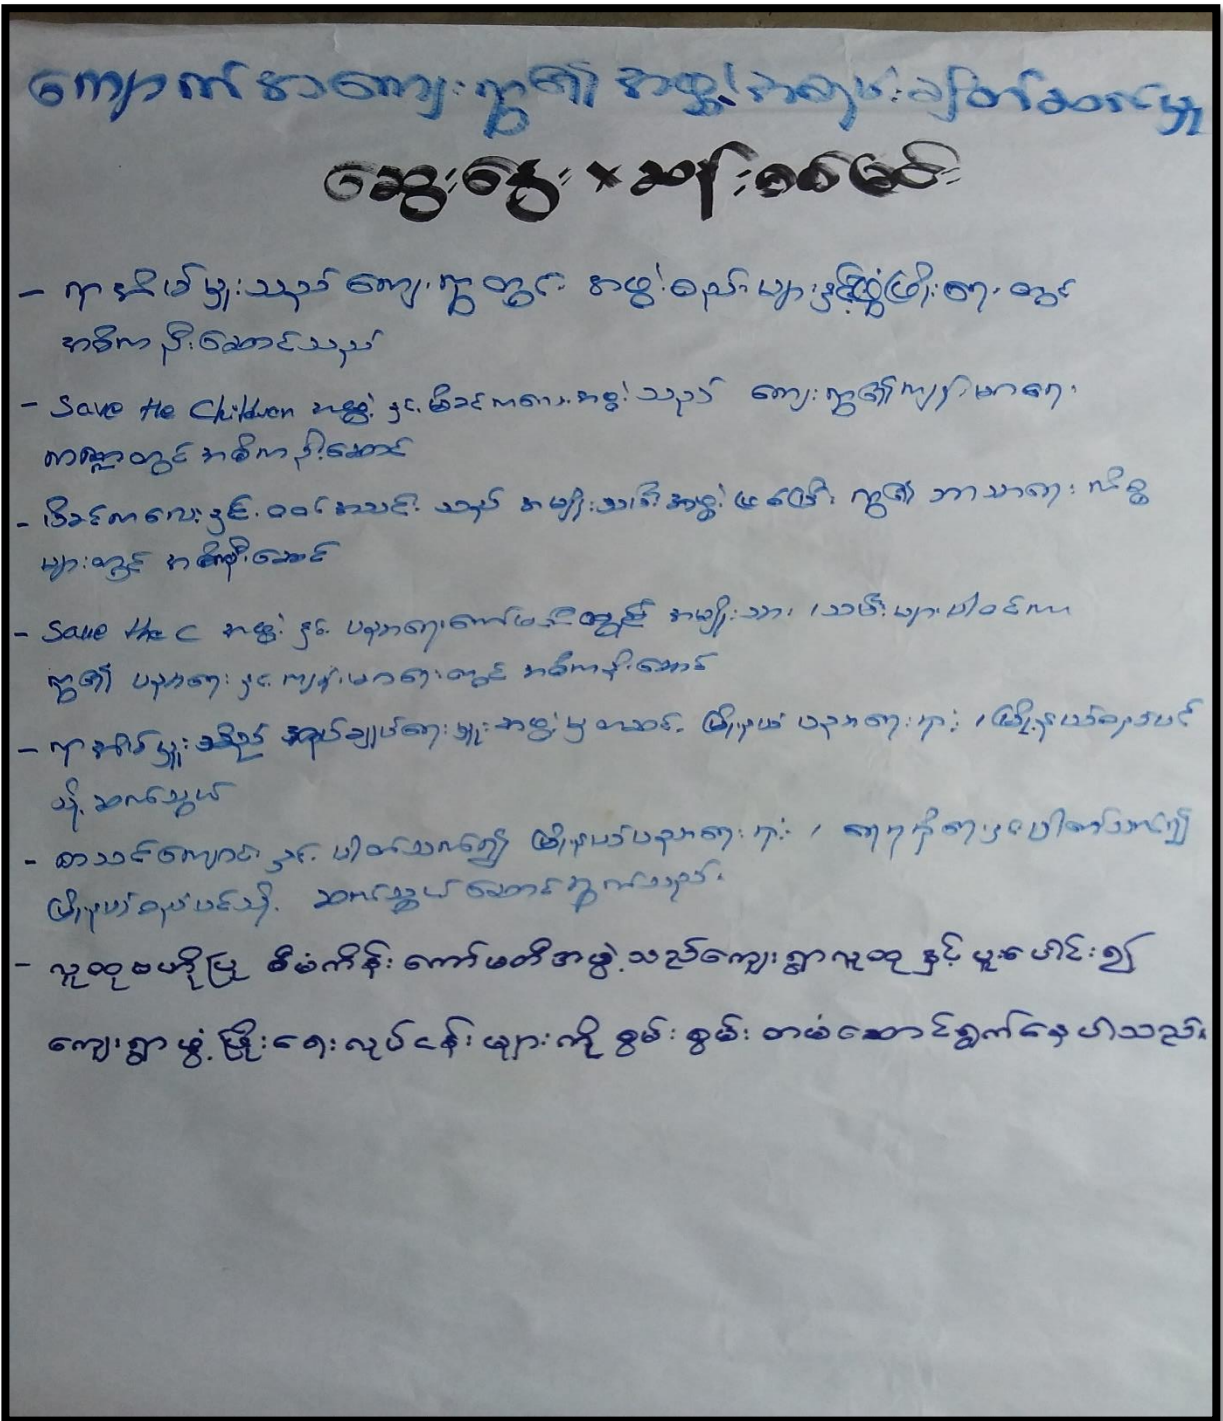 ကျောက်စာကျေးရွာ၏ အဖွဲ့အစည်းချိတ်ဆက်မှု
ဆွေးနွေး × ဆန်းစစ်ခြင်း
- ရာအိမ်မှူးသည် ကျေးရွာတွင် အဖွဲ့စည်းများနှင့်ဖွံ့ဖြိုးရေးတွင်
အဓိကဦးဆောင်သည်
- Save the Children အဖွဲ့ နှင့် မိခင်ကလေးအဖွဲ့သည် ကျေးရွာ၏ကျန်းမာရေး
ကဏ္ဍတွင် အဓိကဦးဆောင်
- မိခင်ကလေးနှင့် အသင်း သည် အမျိုးသမီးအဖွဲ့ ရွာ၏ ဘာသာရေး ကိစ္စ
များတွင် အဓိကဦးဆောင်
- Save the C အဖွဲ့ နှင့် ပညာရေးကော်မတီတွင် အမျိုးသား /သမီးများပါဝင်ကာ
ရွာ၏ ပညာရေး နှင့် ကျန်းမာရေးတွင် အဓိကဦးဆောင်
- ရာအိမ်မှူးသည် အုပ်ချုပ်ရေးမှူးအဖွဲ့မှတဆင့် မြို့နယ် ပညာရေးရုံး /မြို့နယ်စည်ပင်
သို့ ဆက်သွယ်
- စာသင်ကျောင်းနှင့် ပါတ်သက်၍ မြို့နယ်ပညာရေးရုံး / ရေရရှိရေးနှင့်ပါတ်သက်၍
မြို့နယ်စည်ပင်သို့ ဆက်သွယ်ဆောင်ရွက်သည်။
- လူထုဗဟိုပြု စီမံကိန်းကော်မတီအဖွဲ့သည်ကျေးရွာလူထုနှင့်ပူးပေါင်း၍
ကျေးရွာဖွံ့ဖြိုးရေးလုပ်ငန်းများကို စွမ်းစွမ်းတမံဆောင်ရွက်နေပါသည်။